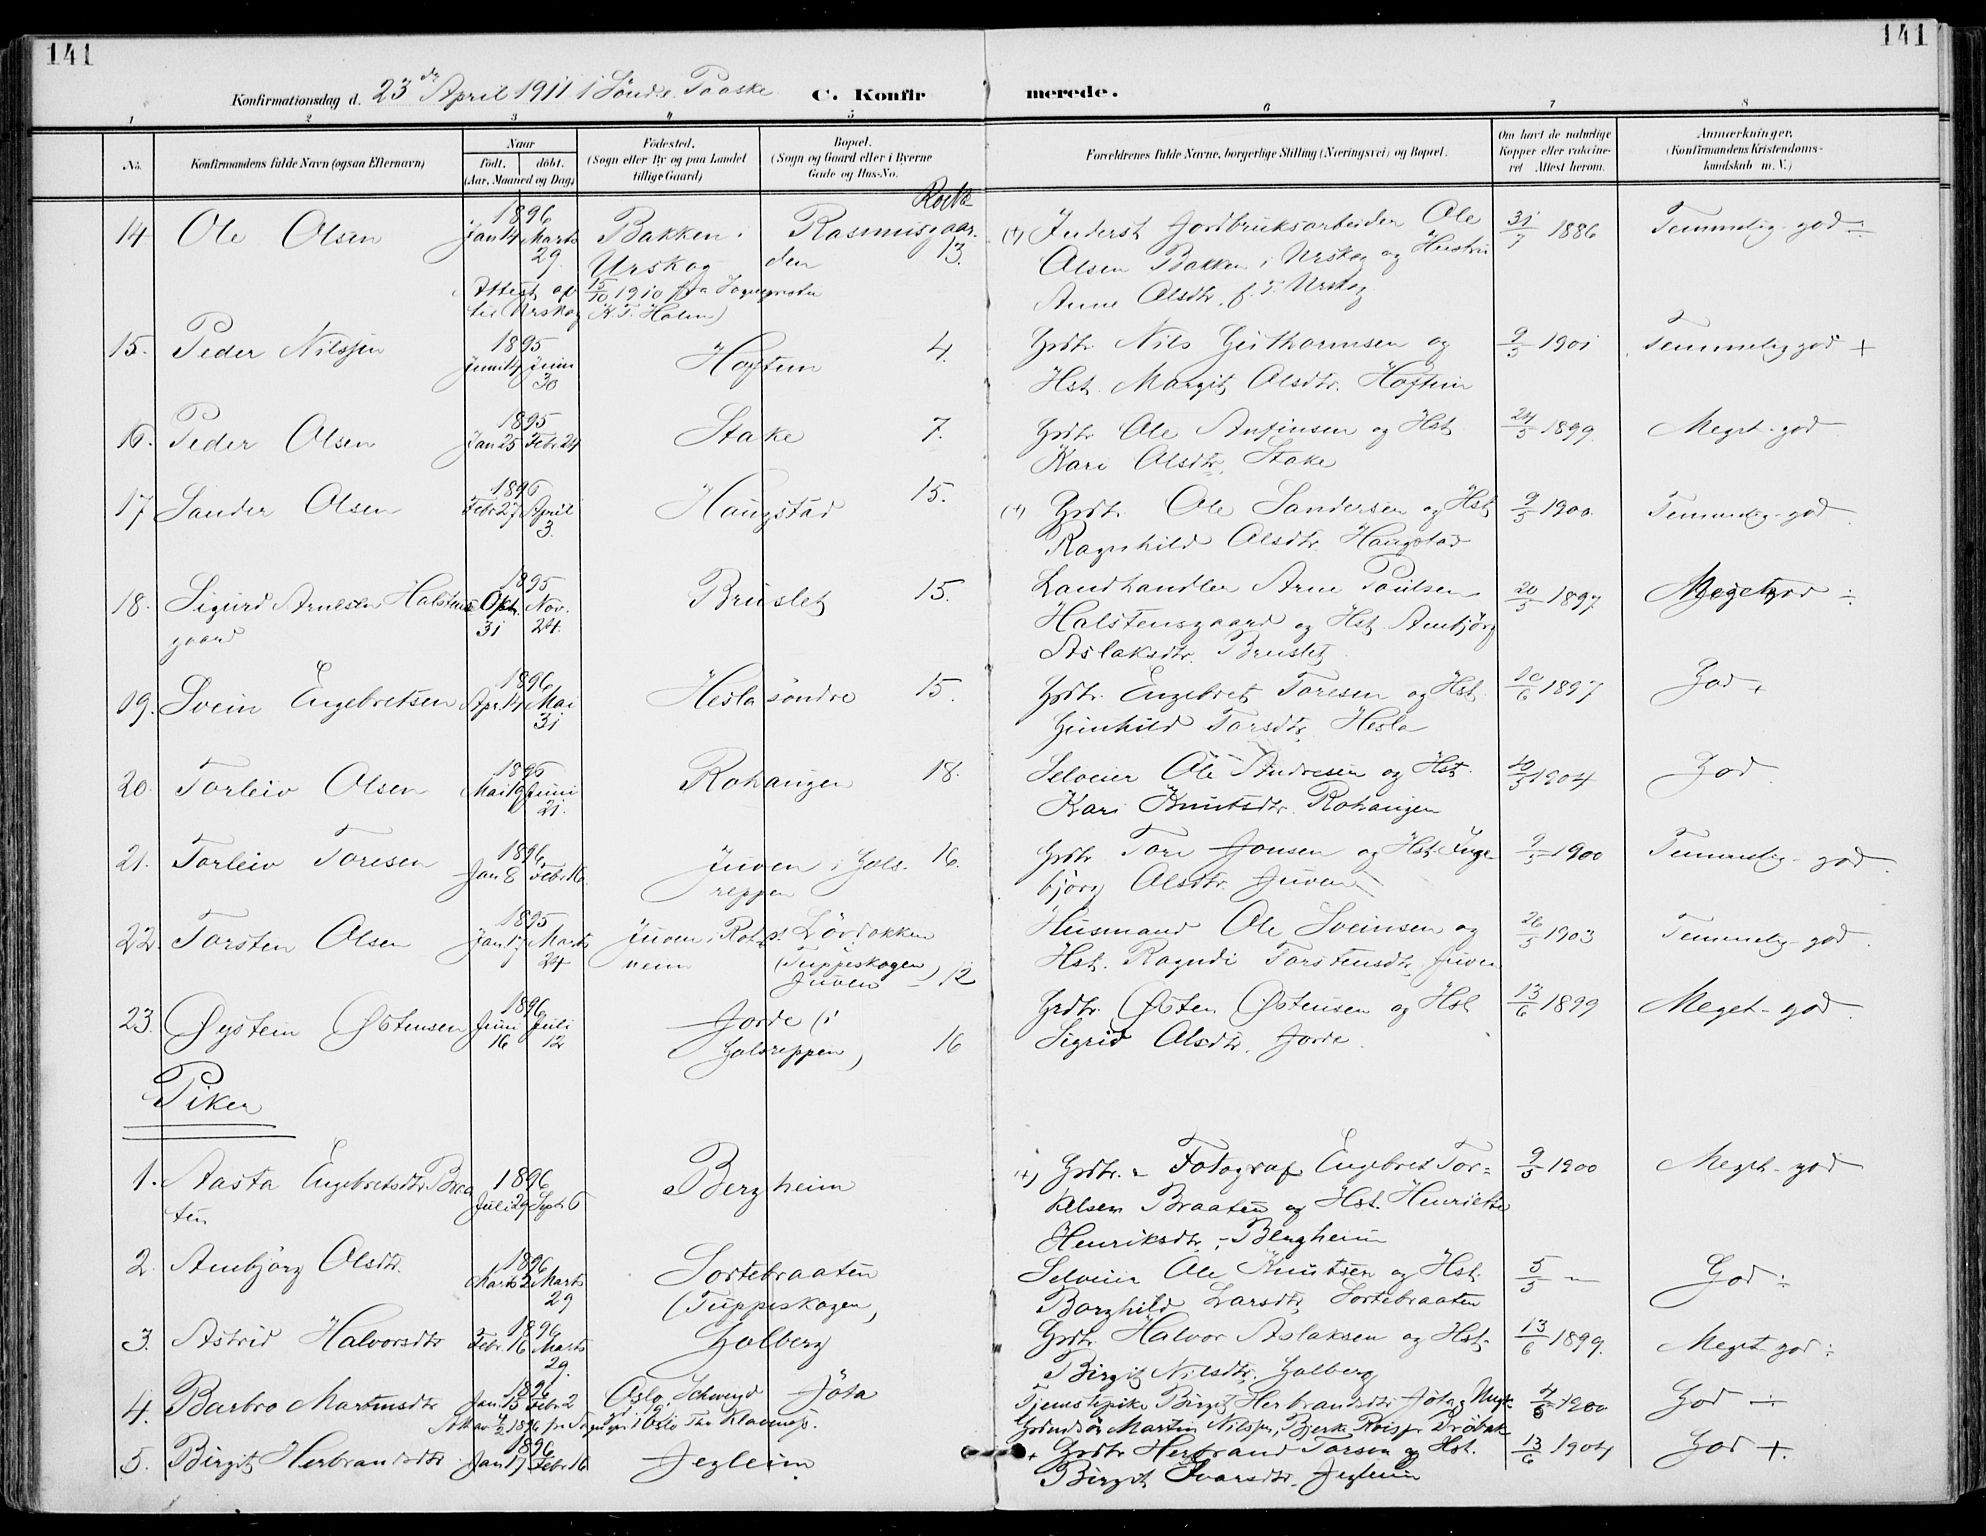 141
141
Konfirmationsdag d. 23de April 1911 1 Sönd. e. Paaske C. Konfirmerede.
1 2 3 4 5 6 7 8
No. Konfirmandens fulde Navn (ogsaa Efternavn) Naar Født. døbt. (Aar, Maaned og Dag) Fødested. (Sogn eller By og paa Landet tillige Gaard) Bopæl. (Sogn og Gaard eller i Byerne Gade og Hus-No. Forældrenes fulde Navne, borgerlige Stilling (Næringsvei) og Bopæl. Om havt de naturlige Kopper eller vaccineret Attest herom. Anmærkninger. (Konfirmandens Kristendomskundskab m. V.)
14 Ole Olsen 1896 Jan 14 Marts 29. Bakken i Urskog Rasmusgaarden 13. (+) Inderst Jordbruksarbeider Ole
Olsen Bakken i Urskog og Hustru
Anne Olsdtr. f. i Urskog. 31/7 1886 Temmelig-god ÷
Attest af 15/10 1910 fra Sogneprest
til Urskog K. T. Holm)
15. Peder Nilssen 1895 Juni 4 Juni 30 Hoftun 4. Grdbr. Nils Guthormsen og
Hst. Margit Olsdtr. Hoftun 9/5 1901 Temmelig god +
16. Peder Olsen 1895 Jan 25 Febr 24 Stake 7. Grdbr. Ole Anfinsen og Hst
Kari Olsdtr. Stake 24/5 1899. Meget-god
17 Sander Olsen 1896 Febr 27 April 3. Haugstad 15. (+) Grdbr. Ole Sandersen og Hst.
Ragnhild Olsdtr. Haugstad 9/5 1900. Temmelig-god.
18. Sigurd Arnesen Halstensgaard 1895 Okt. 31 Nov. 24. Bruslet 15. Landhandler Arne Paulsen
Halstensgaard og Hst. Ambjörg
Aslaksdtr. Bruslet. 20/5 1897 Meget god ÷
19. Svein Engebretsen 1896 Apr 14 Mai 31 Hesla söndre 15. Grdbr. Engebret Toresen og Hst.
Gunhild Torsdtr. Hesla 10/6 1897 God +
20. Torleiv Olsen 1896 Mai 19 Juni 21. Rohaugen 18. Selveier Ole Andresen og Hst.
Kari Knutsdtr. Rohaugen 10/5 1904 God
21. Torleiv Toresen 1896 Jan 8 Febr 16. Juven i Golsreppen 16. Grdbr. Tore Jonsen og Hst. Ingebjörg Olsdtr. Juven 9/5 1900 Temmelig-god.
22. Torsten Olsen 1895 Jan 17 Marts 24 Juven i Rotneim Lördokken
(Tuppeskogen
Juven) 12 Husmand Ole Sveinsen og
Hst. Ragndi Torstensdtr. Juven 26/5 1903 Temmelig-god.
23. Øystein Østensen 1896 Juni 16 Juli 12 Jorde (i
Golsreppen) 16 Grdbr. Østen Østensen og Hst
Sigrid Olsdtr. Jorde. 13/6 1899 Meget-god.
Piker
1. Aasta Engebretsdtr Braaten 1896 Juli 29 Sept 6 Bergheim (+) Grdbr. - Fotograf Engebret Torkelsen Braaten og Hst. Henriette
Henriksdtr. - Bergheim 9/5 1900 Meget-god
2. Ambjörg Olsdtr. 1896 Marts 2 Marts 29 Sortebraaten
(Tuppeskogen) Selveier Ole Knutsen og Hst.
Borghild Larsdtr. Sortebraaten 5/5 — God ÷
3. Astrid Halvorsdtr 1896 Febr. 16 Marts 29. Golberg Grdbr. Halvor Aslaksen og Hst.
Birgit Nilsdtr. Golberg 13/6 1899. Meget-god ÷
4. Barbro Martinsdtr 1896 Jan. 13 Febr 2 Oslo Jöta Tjenestepike Birgit Herbrandsdtr Jöta
Martin Nilssen, Bjerke Dröbak 1900 God ÷
5. Birgit Herbrandsdtr 1896 Jan 17 Febr 16 Jegleim + Grdbr. Herbrand Torsen og Hst.
Birgit Ivarsdtr. Jegleim 13/6 1904 God +